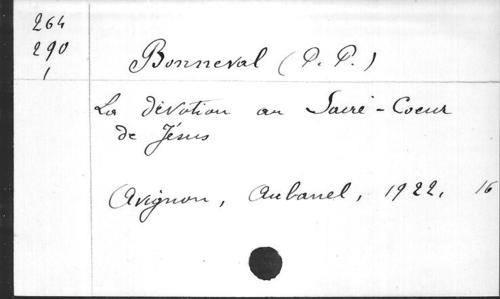 264
290
1
Bonneval (P. P.)
La dévotion au Sacré-Coeur
de Jésus
Avignon, Aubanel, 1922, 16